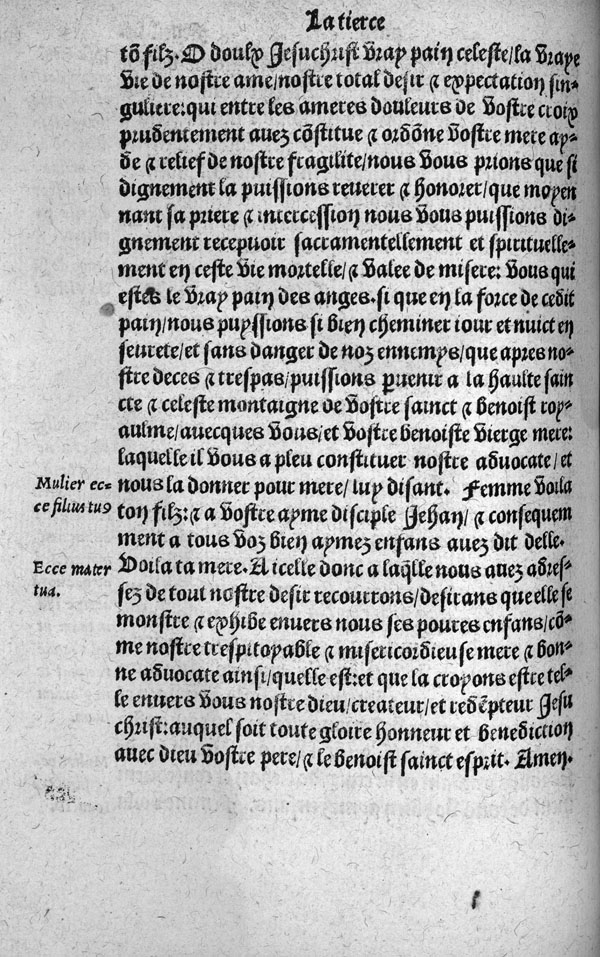 La tierce
tõ filz. O doulx Jesuchrist vray pain celeste/la vraye
vie de nostre ame/nostre total desir ⁊ expectation sin-
guliere: qui entre les ameres douleurs de vostre croix
prudentement avez cõstitue ⁊ ordõne vostre mere ay-
de ⁊ relief de nostre fragilite/nous vous prions que si
dignement la puissions reverer ⁊ honorer/que moyen
nant sa priere ⁊ intercession nous vous puissions di-
gnement recepvoir sacramentellement et spirituelle-
ment en ceste vie mortelle/⁊ valee de misere: vous qui
estes le vray pain des anges. si que en la force de cedit
pain/nous puyssions si bien cheminer iour et nuict en
seurete/et sans danger de noz ennemys/que apres no-
stre deces ⁊ trespas/puissions ꝑvenir a la haulte sain
cte ⁊ celeste montaigne de vostre sainct ⁊ benoist roy-
aulme/avecques vous/et vostre benoiste vierge mere:
laquelle il vous a pleu constituer nostre advocate/et
Mulier ec- nous la donner pour mere/luy disant. Femme voila
ce filius tuꝰ ton filz: ⁊ a vostre ayme disciple Jehan/⁊ consequem
ment a tous voz bien aymez enfans avez dit delle.
Ecce mater Voila ta mere. A icelle donc a laq̃lle nous avez adres-
tua. sez de tout nostre desir recourrons/desirans que elle se
monstre ⁊ exhibe envers nous ses poures enfans/cõ-
me nostre trespitoyable ⁊ misericordieuse mere ⁊ bon-
ne advocate ainsi/quelle est: et que la croyons estre tel-
le envers vous nostre dieu/createur/et redẽpteur Jesu
christ: auquel soit toute gloire honneur et benediction
avec dieu vostre pere/⁊ le benoist sainct esprit. Amen.